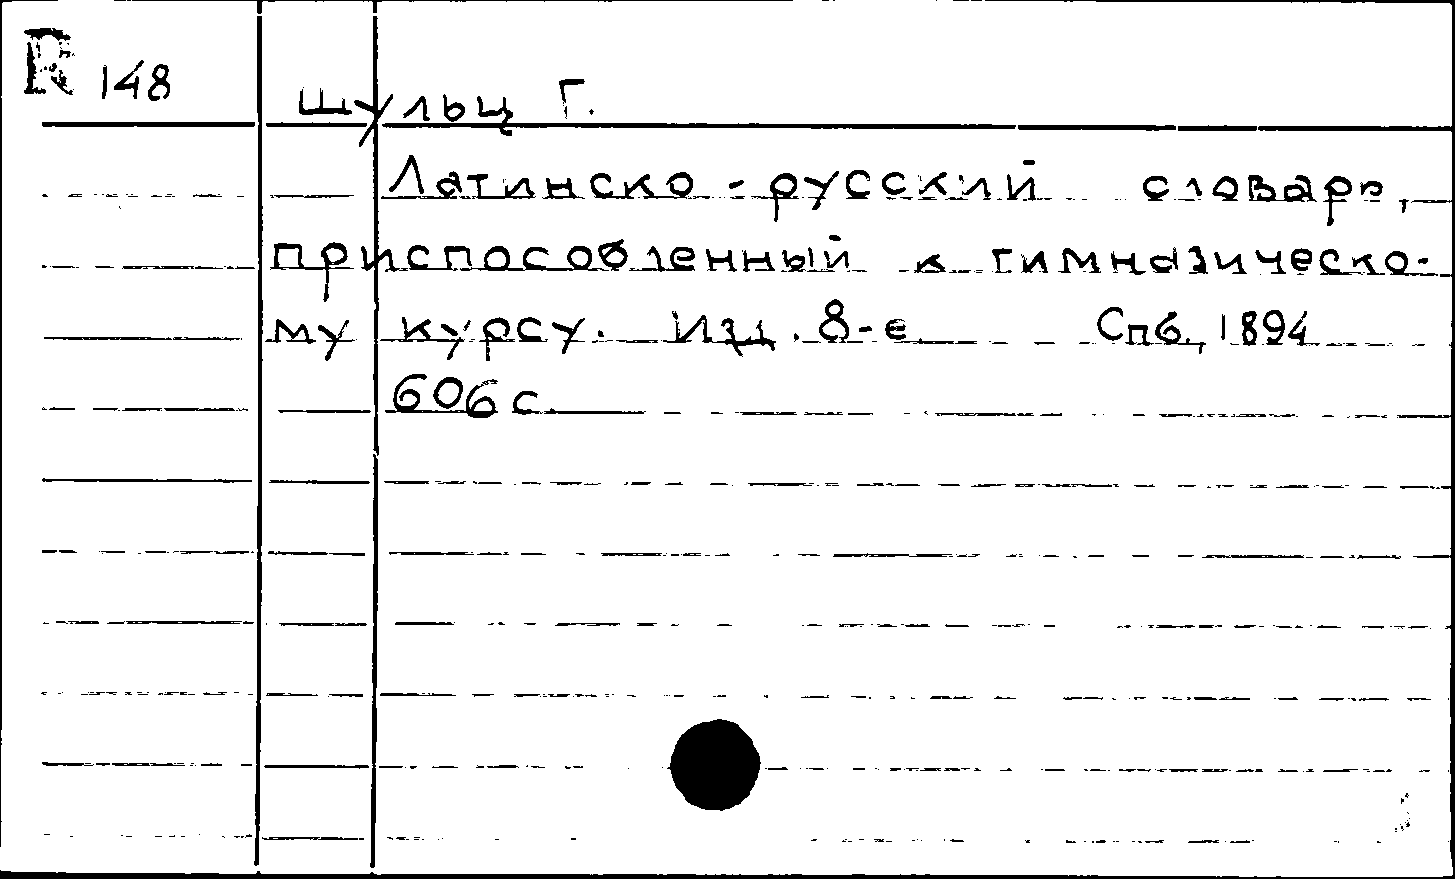 R 148
Шульц Г.
Латинско-русский словарь,
приспособленный к гимназическо-
му курсу. Изд. 8-е Спб., 1894
606 с.